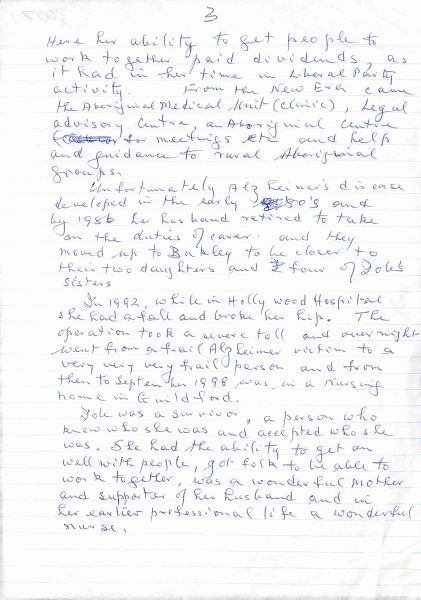 3
Here her ability to get people to
work together paid dividends, as
it had in her time in Liberal Party
activity. From the New Era came
the Aboriginal Medical Unit (clinic), Legal
advisory Centre, an Aboriginal Centre
for meetings etc and help
and guidance to rural Aboriginal
groups.
Unfortunately Alzheimer's disease
developed in the early 80's and
by 1986 he husband retired to take
on the duties of carer. and they
moved up to Binkley to be closer to
their two daughters and four of Yole's
sisters
In 1992, while in Hollywood Hospital
she had a fall and broke her hip. The
operation took a severe toll and overnight
went from a frail Alzheimer victim to a
very very very frail person and from
then to September 1998 was in a nursing
home in Guildford.
Yole was a survivor, a person who
knew who she was and accepted who she
was. She had the ability to get on
well with people, got folk to be able to
work together, was a wonderful mother
and supporter of her husband and in
her earlier professional life a wonderful
nurse.